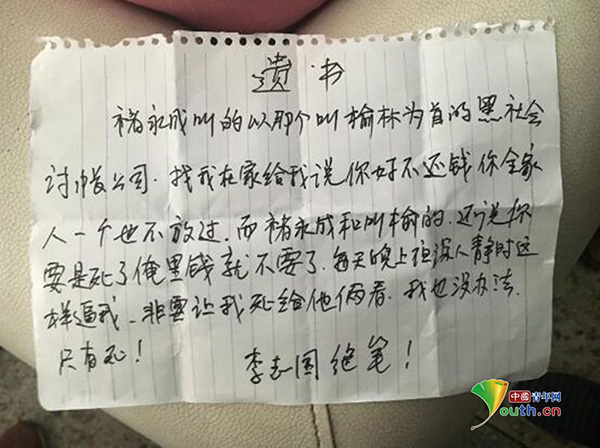 遗书
褚永成叫的以那个叫榆林为首的黑社会
讨债公司.找我在家给我说你好不还钱你全家
人一个也不放过.而褚永成和叫榆的.还说你
要是死了俺里钱就不要了.每天晚上夜深人静时这
样逼我.非要让我死给他俩看.我也没办法.
只有死!
李志国绝笔!
中国青年网
youth.cn